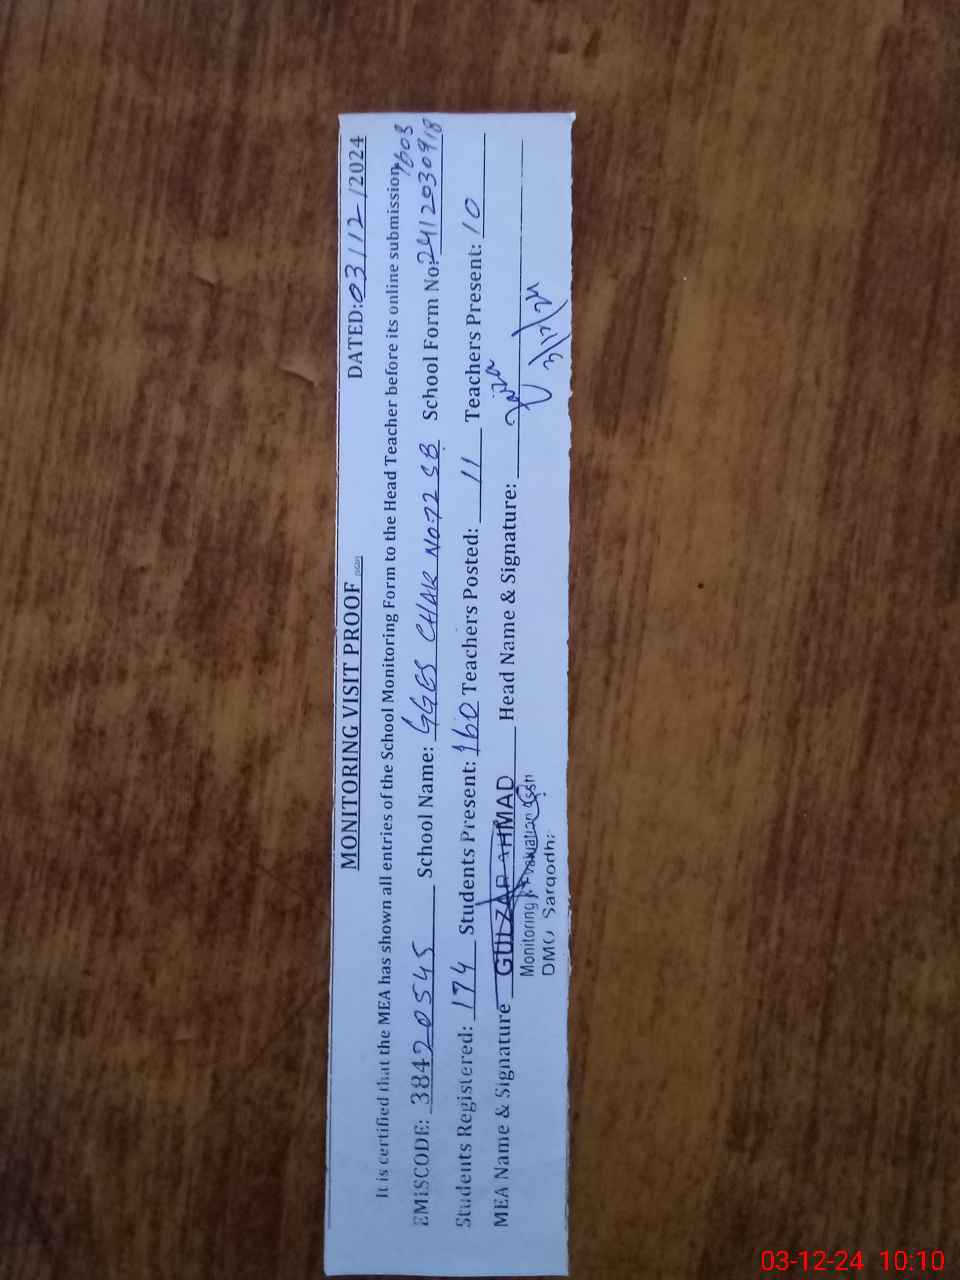 MONITORING VISIT PROOF DATED: 03/12/2024
It is certified that the MEA has shown all entries of the School Monitoring Form to the Head Teacher before its online submission.
EMISCODE: 38420545 School Name: GGES CHAK NO.72 SB School Form No: 2412030918 1603
Students Registered: 174 Students Present: 160 Teachers Posted: 11 Teachers Present: 10
MEA Name & Signature GULZAR AHMAD Head Name & Signature:
Monitoring & Evaluation Asstt 3/12/24
DMO Sargodha
03-12-24 10:10